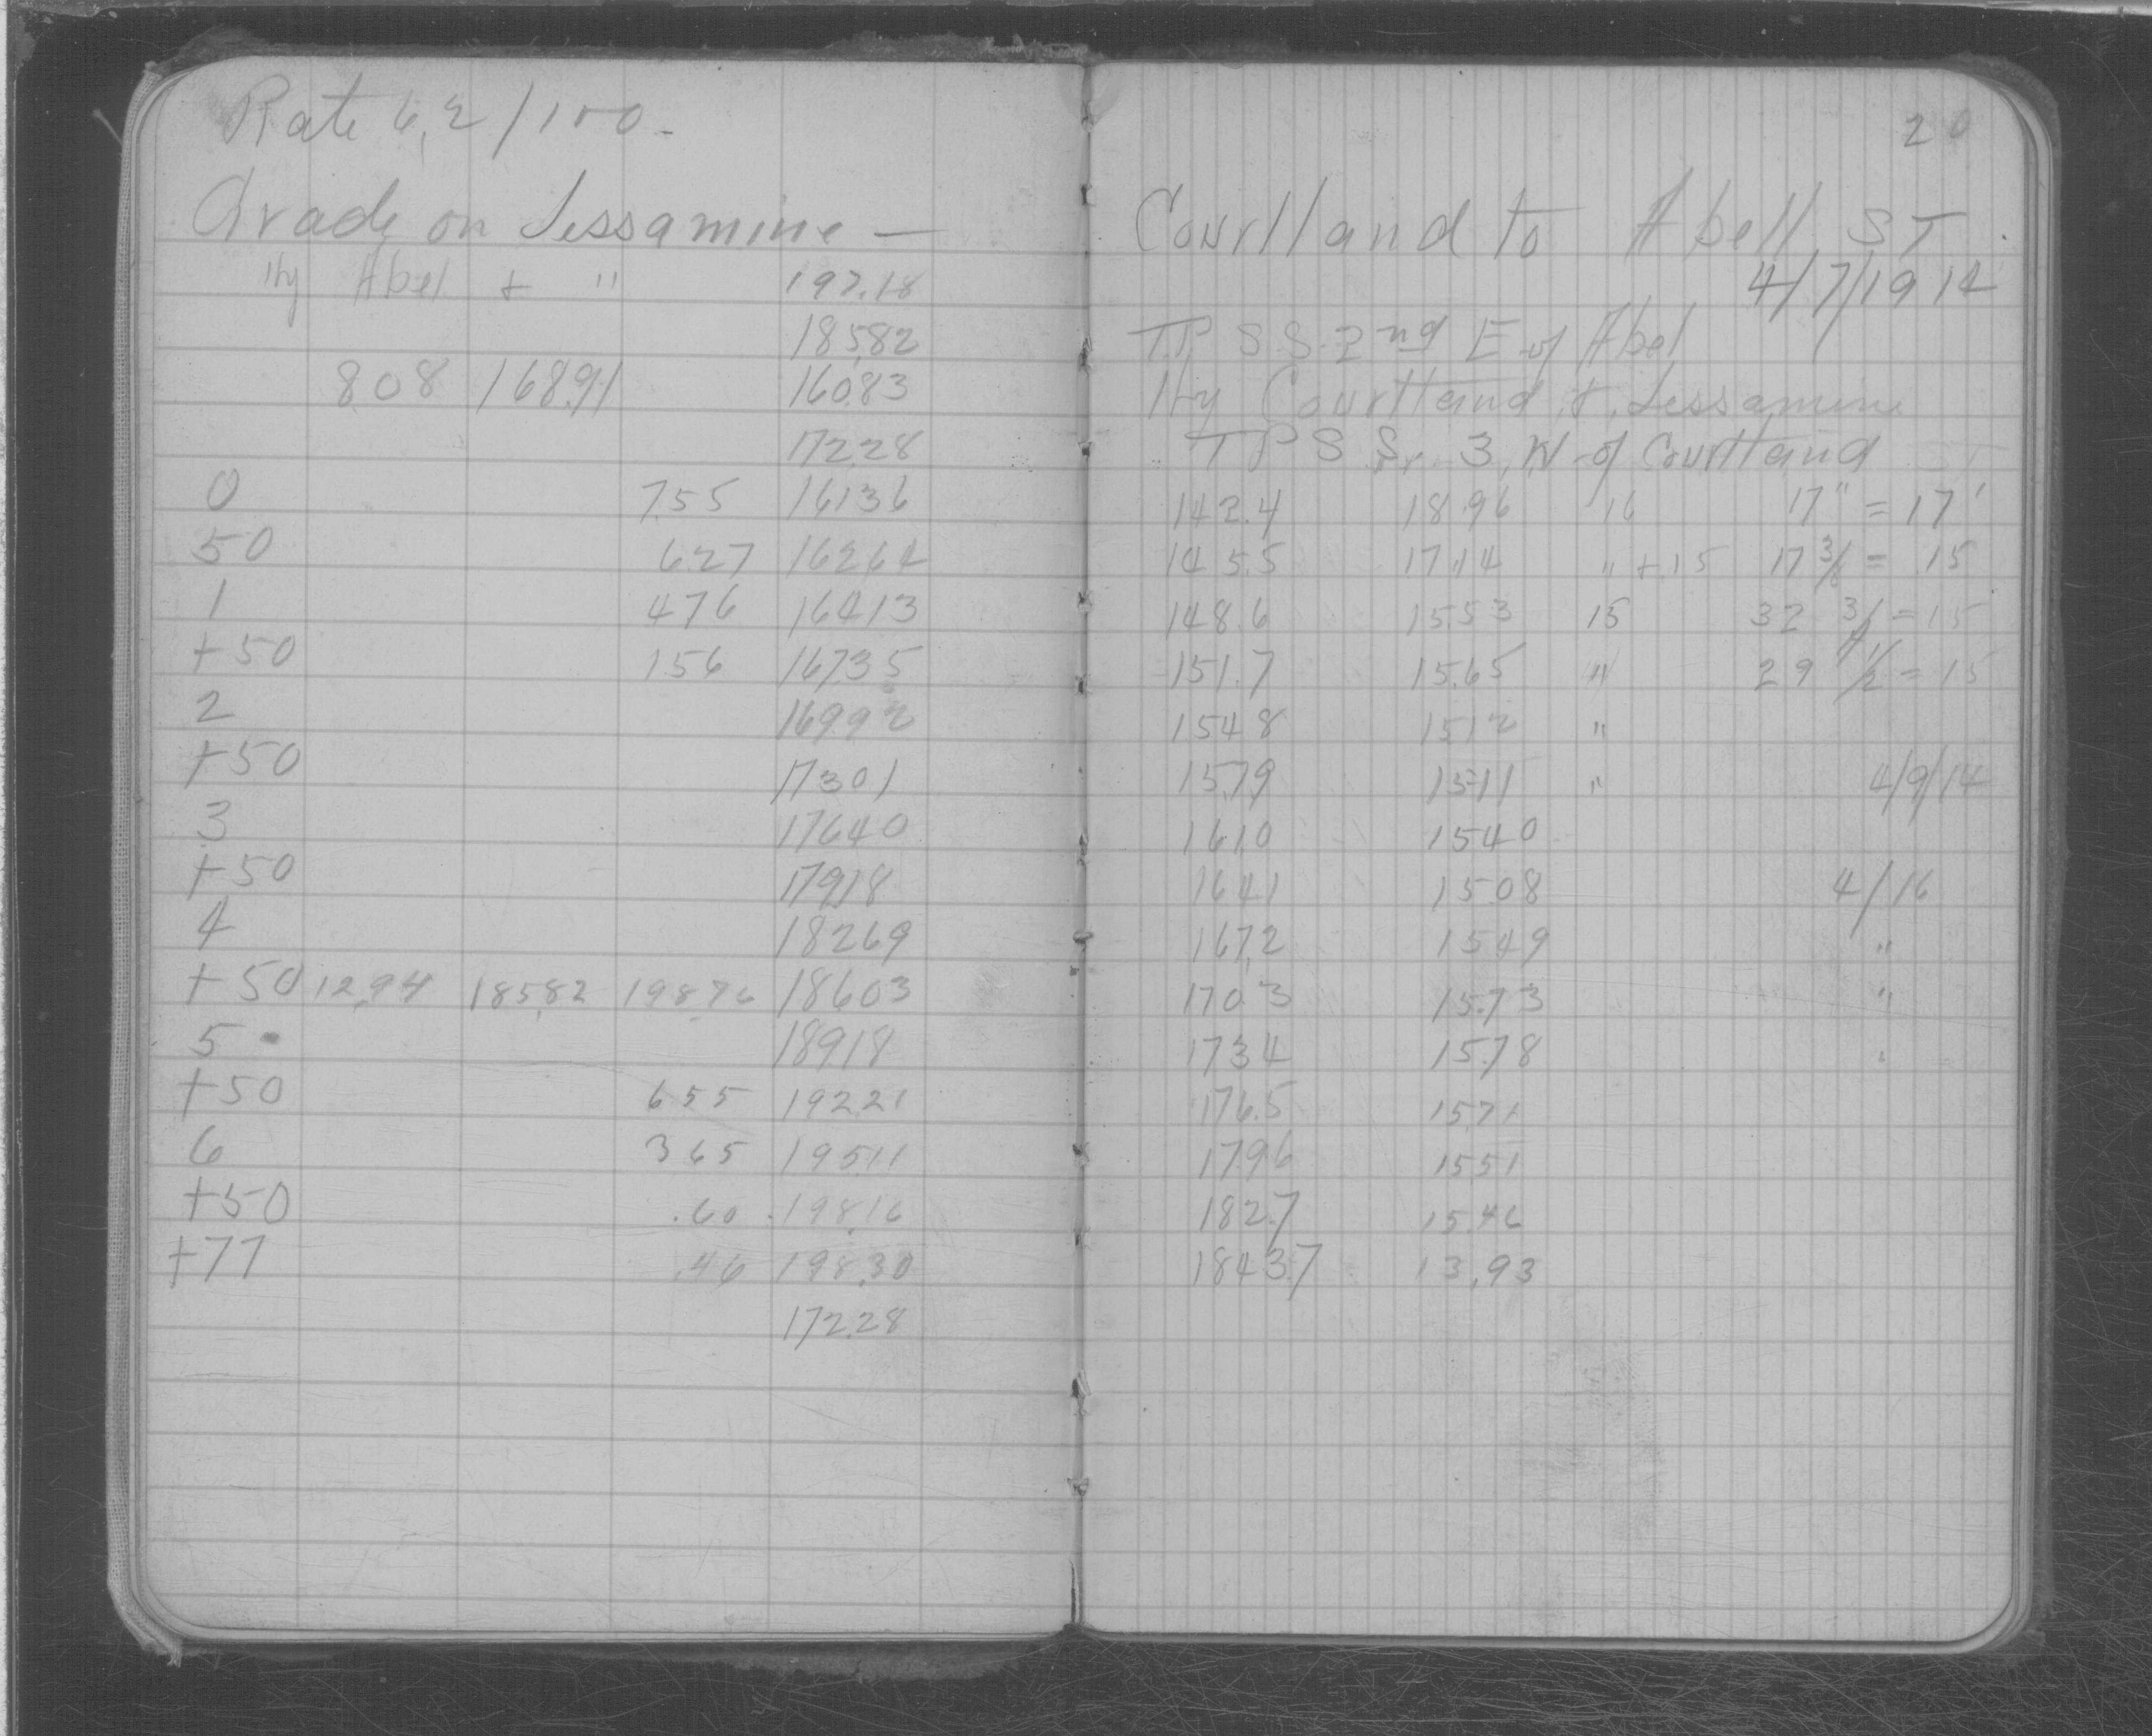 Rate 6.2/100-
Grade on Jessamine —
Hy Abel + " 197.18
185.82
8.08 168.91 160.83
172.28
0 7.55 161.36
50 6.27 162.64
1 4.76 164.13
+50 1.56 167.35
2 169.92
+50 173.01
3 176.40
+50 179.18
4 182.69
+50 12.94 185.82 198.76 186.03
5 189.18
+50 6.55 192.21
6 3.65 195.11
+50 .60 198.16
+77 .46 198.30
172.28
20
Courtland to Abell ST
4/7/1914
T.P S.S. 2nd E of Abel
Hy Courtland & Jessamine
TP S S. 3 W of Courtland ST
142.4 18.96 16 17" = 17'
145.5 17.14 " + 15 17 3/8 = 15
148.6 15.53 15 32 = 15
151.7 15.65 " 29 1/2 = 15
154.8 15.12 "
157.9 15.11 " 4/9/14
161.0 15.40
164.1 15.08 4/16
167.2 15.49 "
170.3 15.73 "
173.4 15.78 "
176.5 15.71
179.6 15.51
182.7 15.46
184.37 13.93